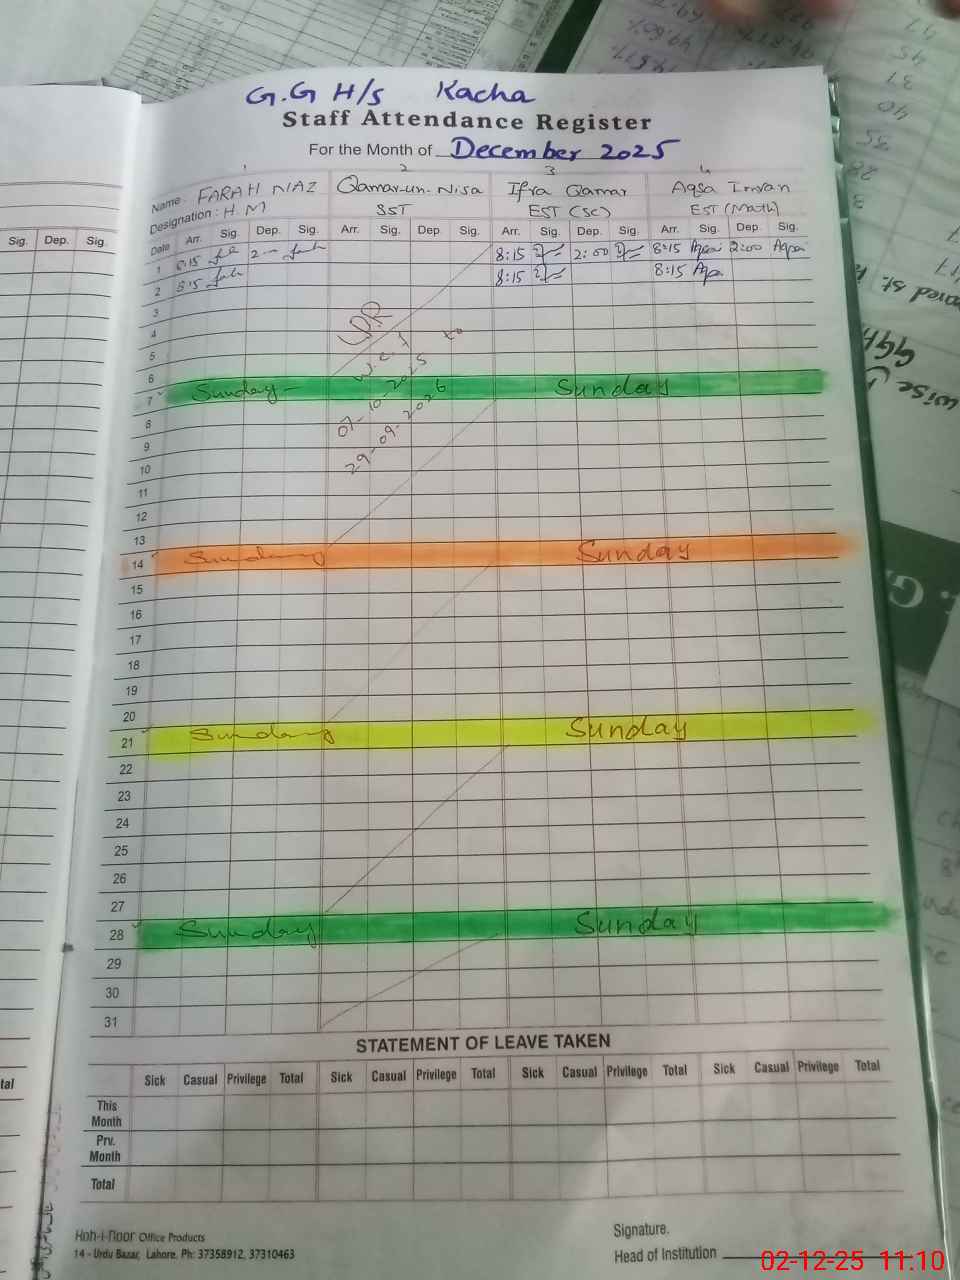 G.G H/S Kacha
Staff Attendance Register
For the Month of December 2025
1 2 3 4
Name: FARAH NIAZ Qamar-un-Nisa Ifra Qamar Aqsa Imran
Designation: H.M SST EST (SC) EST (Math)
Sig. Dep. Sig.
Date Arr. Sig. Dep. Sig. Arr. Sig. Dep. Sig. Arr. Sig. Dep. Sig. Arr. Sig. Dep. Sig.
1 8:15 2 8:15 2:00 8:15 Aqsa 2:00 Aqsa
2 8:15 8:15 8:15 Aqsa
3
4
5
6
7 Sunday Sunday
w.e.f
07-10-2025 to
29-09-2026
8
9
10
11
12
13
14 Sunday Sunday
15
16
17
18
19
20
21 Sunday Sunday
22
23
24
25
26
27
28 Sunday Sunday
29
30
31
STATEMENT OF LEAVE TAKEN
Sick Casual Privilege Total Sick Casual Privilege Total Sick Casual Privilege Total Sick Casual Privilege Total
This Month
Prv. Month
Total
tal
Koh-i-Noor Office Products
14 - Urdu Bazar, Lahore. Ph: 37358912, 37310463
Signature.
Head of Institution
02-12-25 11:10